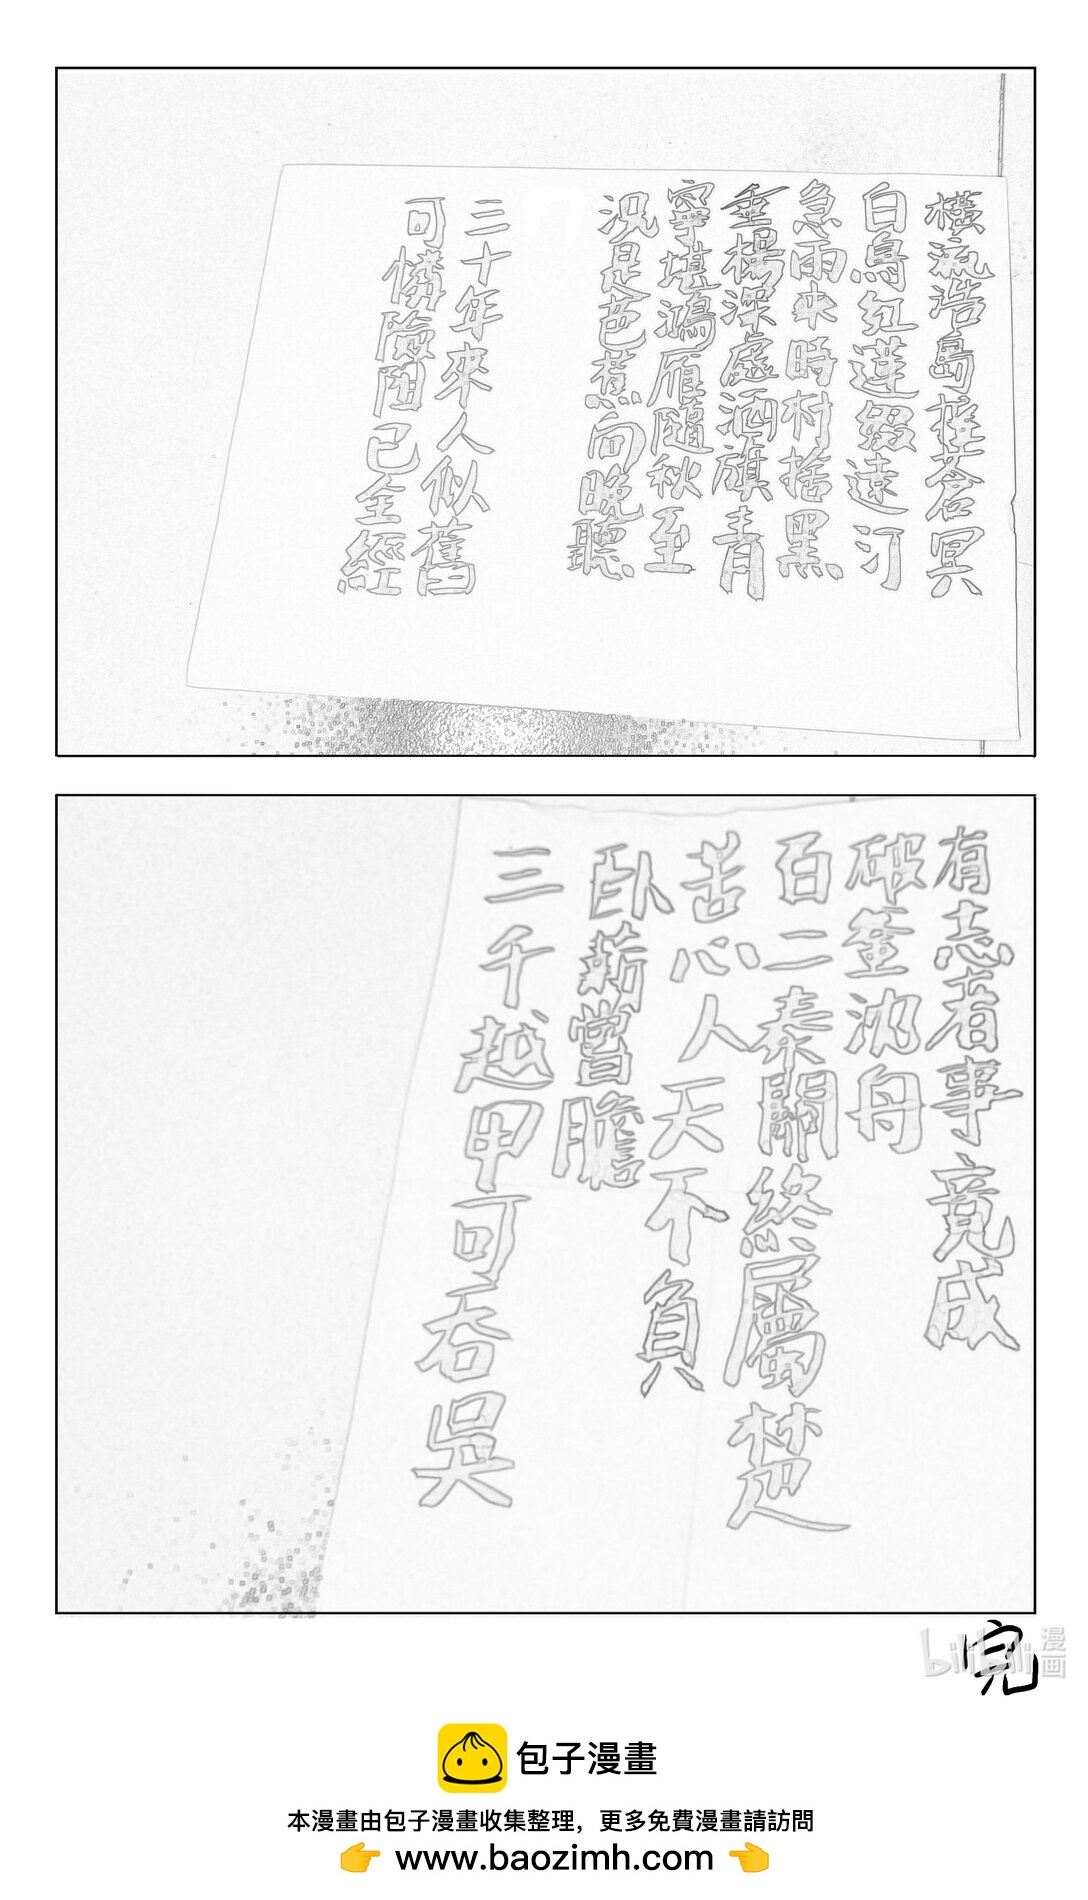 橫流浩島推蒼冥
白鳥紅蓮綴遠汀
急雨來時村捨黑
垂楊深處酒旗青
寧堪鴻雁隨秋至
況是芭蕉向晚聽
三十年來人似舊
可憐險阻已全經
有志者事竟成
破釜沈舟
百二秦關終屬楚
苦心人天不負
臥薪嘗膽
三千越甲可吞吳
完
bilibili 漫画
包子漫畫
本漫畫由包子漫畫收集整理，更多免費漫畫請訪問
👉 www.baozimh.com 👈